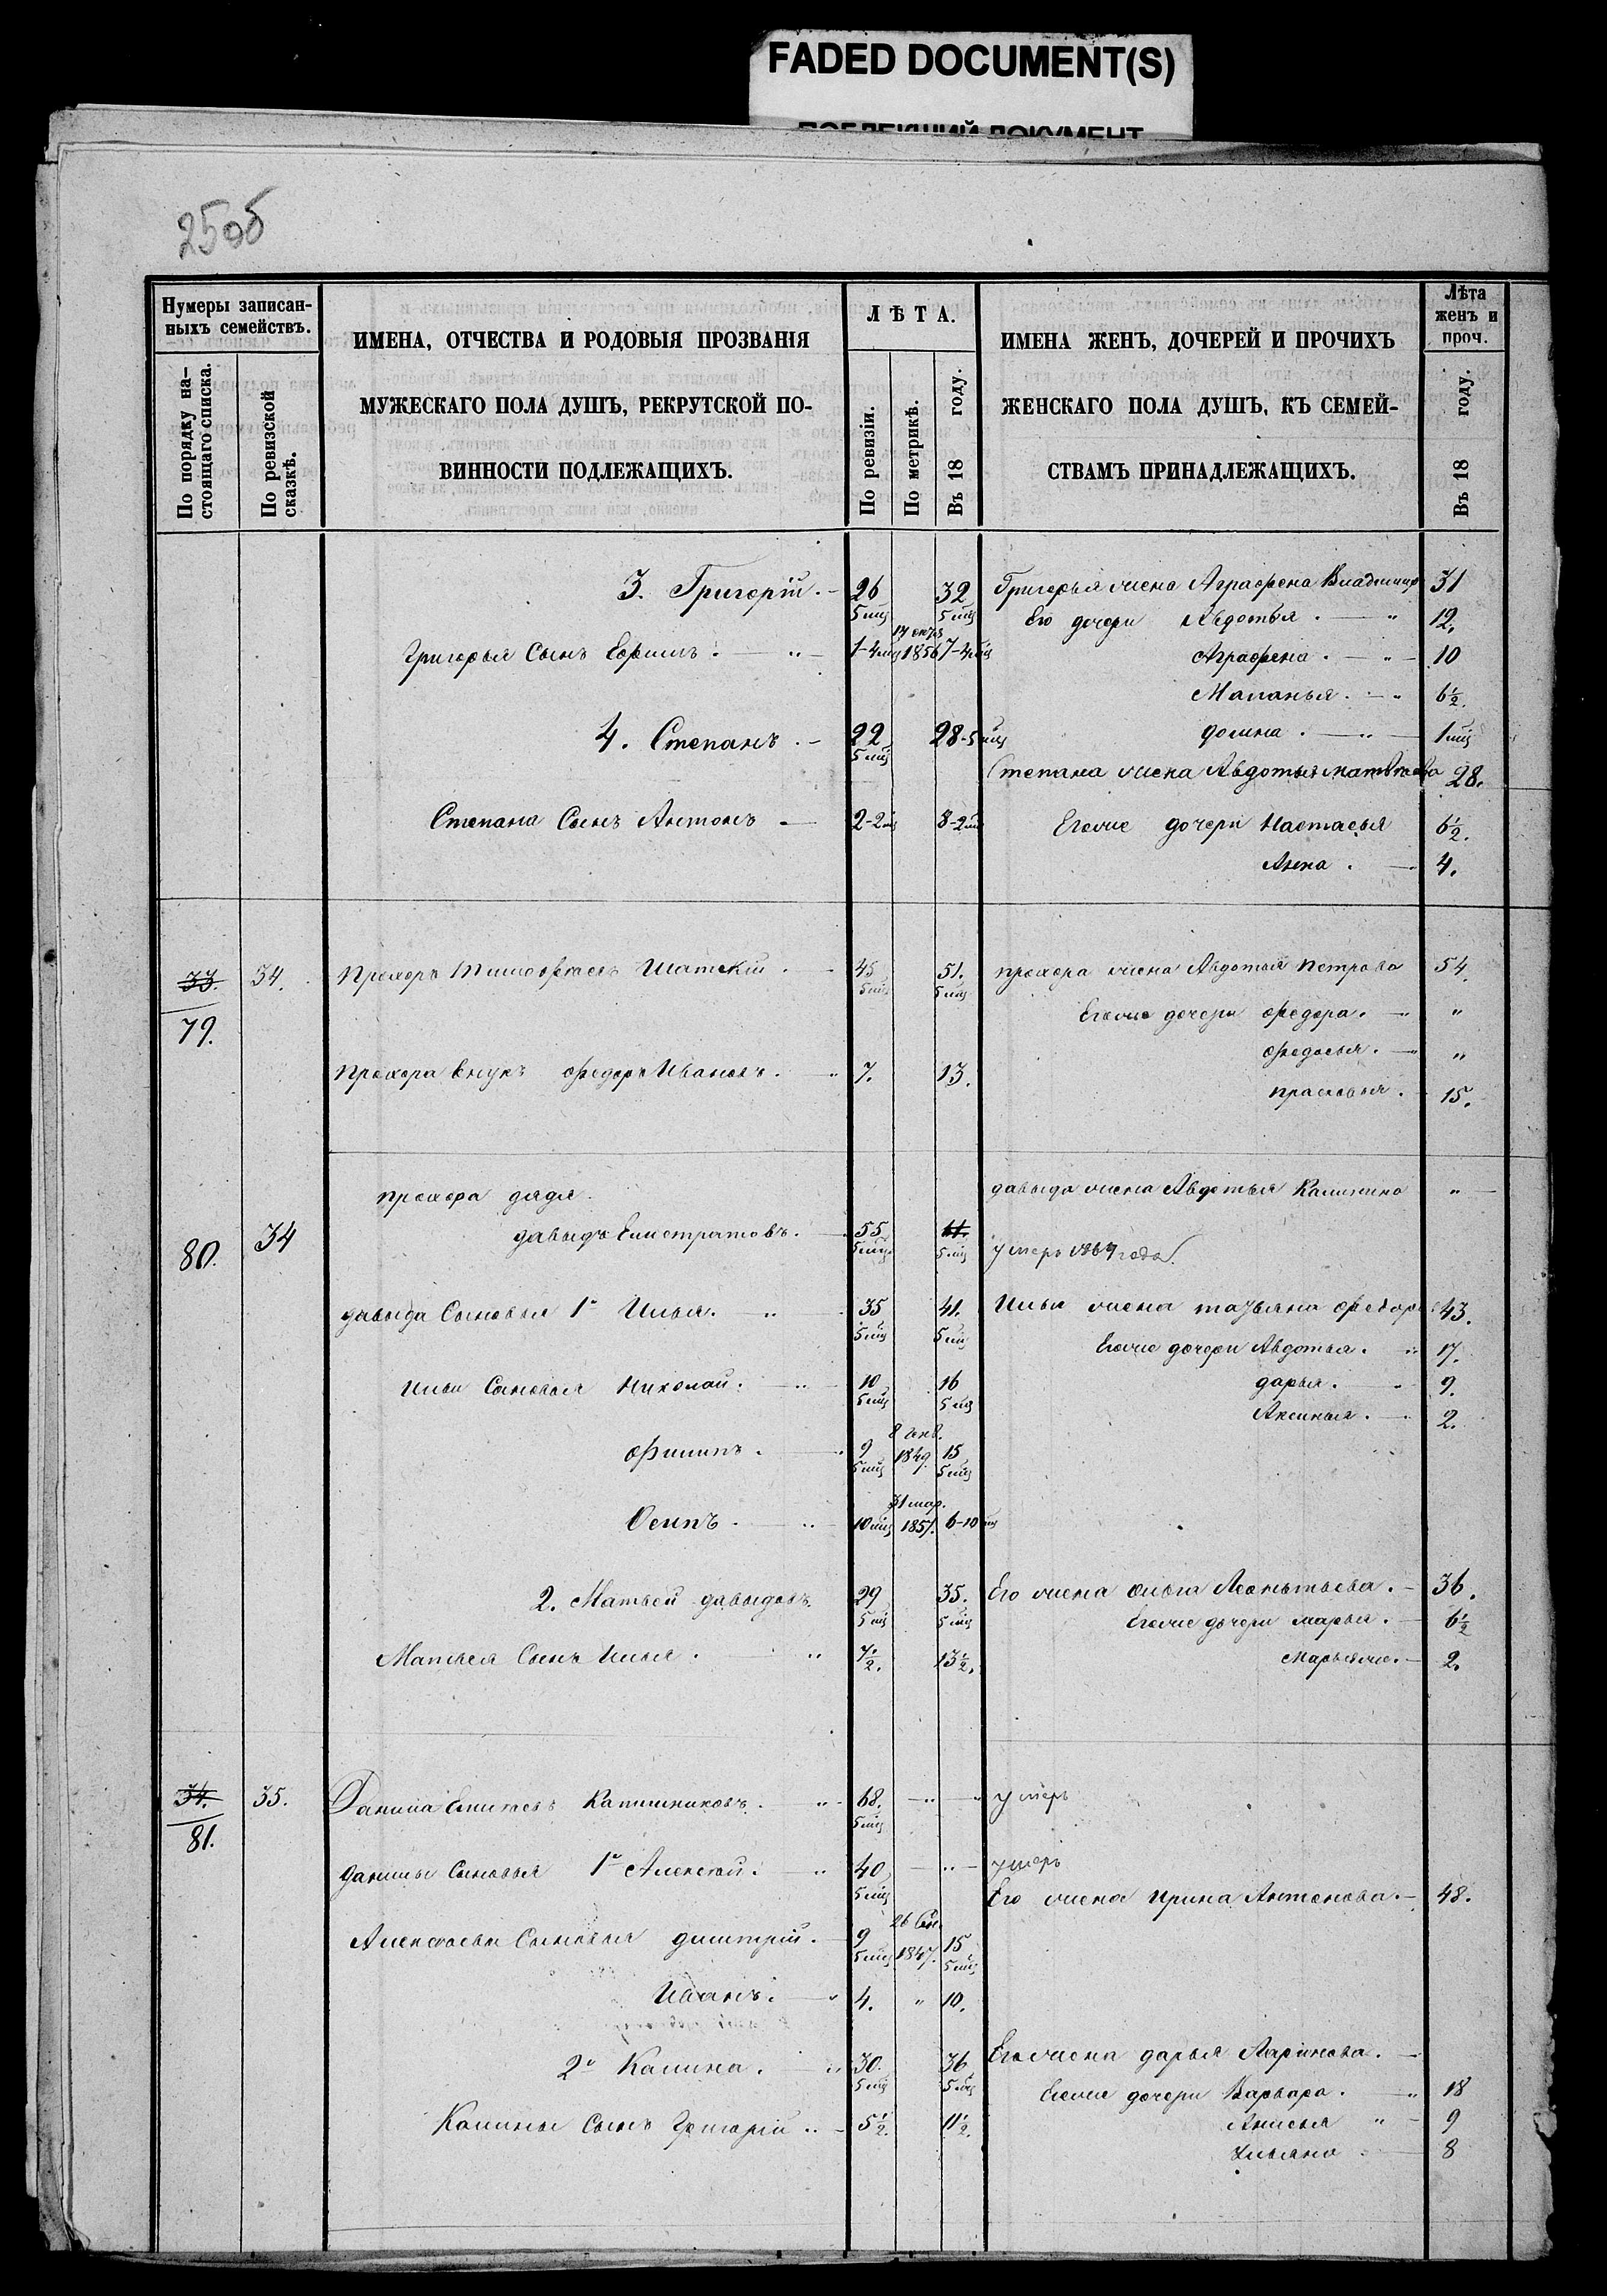 FADED DOCUMENT(S)
ПОБЛЕКШИЙ ДОКУМЕНТ
25об
Нумеры записан-
ныхъ семействъ.
По порядку на-
стоящаго списка.
По ревизской
сказкѣ.
ИМЕНА, ОТЧЕСТВА И РОДОВЫЯ ПРОЗВАНІЯ
МУЖЕСКАГО ПОЛА ДУШЪ, РЕКРУТСКОЙ ПО-
ВИННОСТИ ПОДЛЕЖАЩИХЪ.
ЛѢТА.
По ревизіи.
По метрикѣ.
Въ 18 году.
ИМЕНА ЖЕНЪ, ДОЧЕРЕЙ И ПРОЧИХЪ
ЖЕНСКАГО ПОЛА ДУШЪ, КЪ СЕМЕЙ-
СТВАМЪ ПРИНАДЛЕЖАЩИХЪ.
Лѣта
женъ и
проч.
Въ 18 году.
3. Григорій. 26 5 мц 32 5 мц Григорья жена Аграфена Владимир 31
Его дочери Авдотья 12.
Григорья Сынъ Ефимъ. 1-4 мц 1856 7-4 мц Аграфена 10
Маланья 6½.
4. Степанъ 22 5 мц 28-5 мц домна 1 мц
Степана жена Авдотья матвѣева 28.
Степана Сынъ Антонъ 2-2 мц 8-2 мц Егоже дочери Настасья 6½.
Анна 4.
33. 79. 34. Прохоръ Тимофѣевъ Шатскій 45 5 мц 51. 5 мц прохора жена Авдотья Петрова 54.
Егоже дочери федора "
федосья "
Прохора внукъ федоръ Ивановъ 7. 13. прасковья 15.
прохора дядя давыда жена Авдотья Калинина "
80. 34 давыдъ Елистратовъ. 55 5 мц 61. 5 мц умеръ 1864 года
давыда Сыновья 1й Илья. 35 5 мц 41. 5 мц Ильи жена татьяна федор 43.
Егоже дочери Авдотья 17.
Ильи Сыновья Николай. 10 5 мц 16 5 мц дарья. 9.
Аксинья 2.
филипъ. 9 5 мц 8 генв. 1849. 15 5 мц
Осипъ 10 мц 31 мар. 1857. 6-10 мц
2. Матвей давыдовъ. 29 5 мц 35. 5 мц Его жена ольга Леонтьева. 36.
Егоже дочери марья. 6½
Матвея Сынъ Илья 7½. 13½. Марья же. 2.
34. 81. 35. Данила Калашниковъ 68. 5 мц умеръ
данилы Сыновья 1й Алексѣй. 40 5 мц умеръ
Его жена Ирина Антонова. 48.
Алексѣевы Сыновья дмитрій. 9 5 мц 26 Сен. 1847. 15 5 мц
Иванъ. 4. " 10.
2й Калина 30. 5 мц 36 5 мц Его жена дарья Ларіонова.
Егоже дочери Варвара 18
Калины Сынъ Григорій 5½. 11½. Анисья 9
Ульяна 8